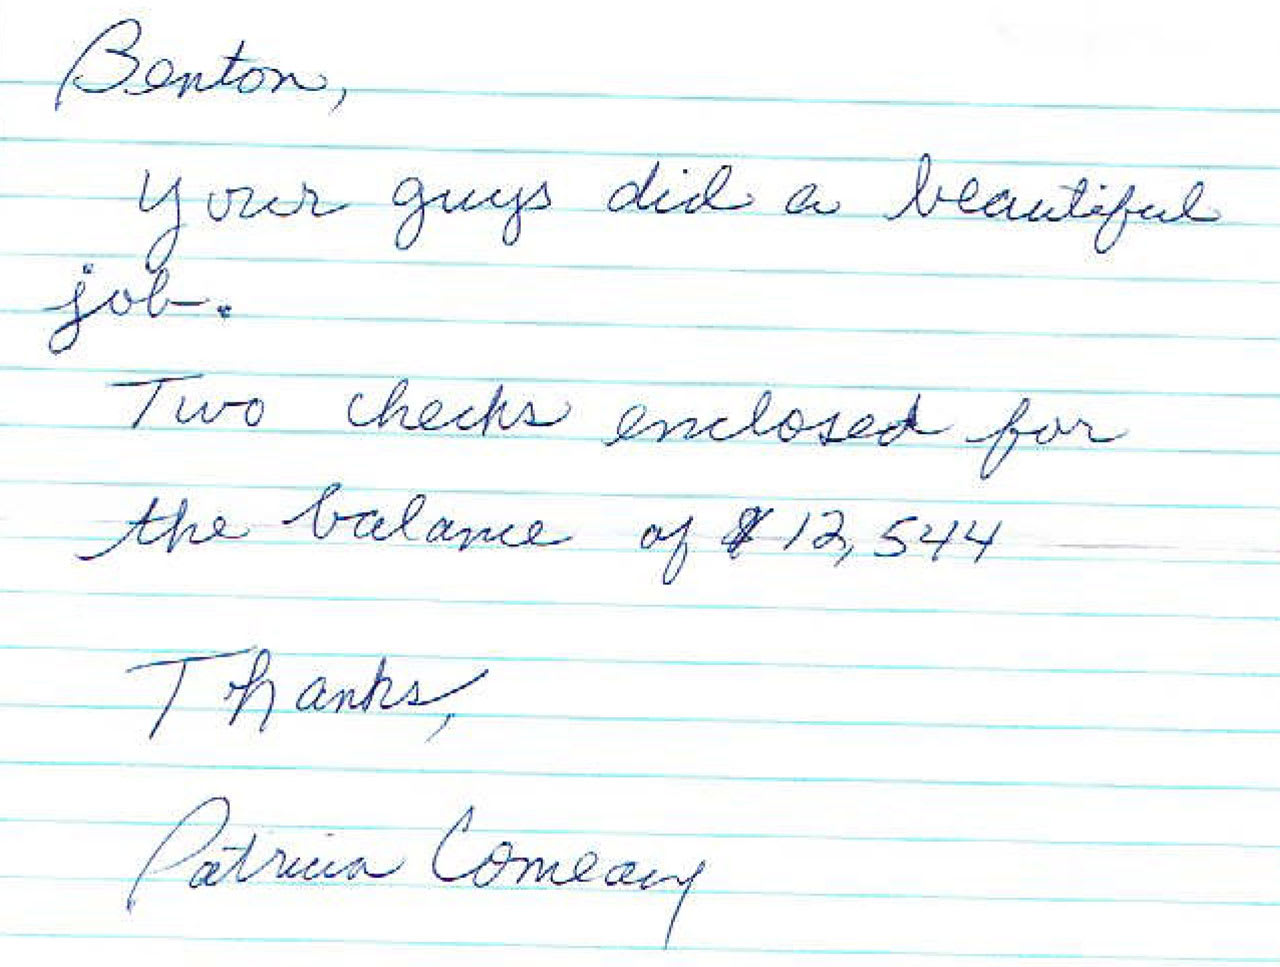 Benton,
Your guys did a beautiful
job.
Two checks enclosed for
the balance of $12,544
Thanks,
Patricia